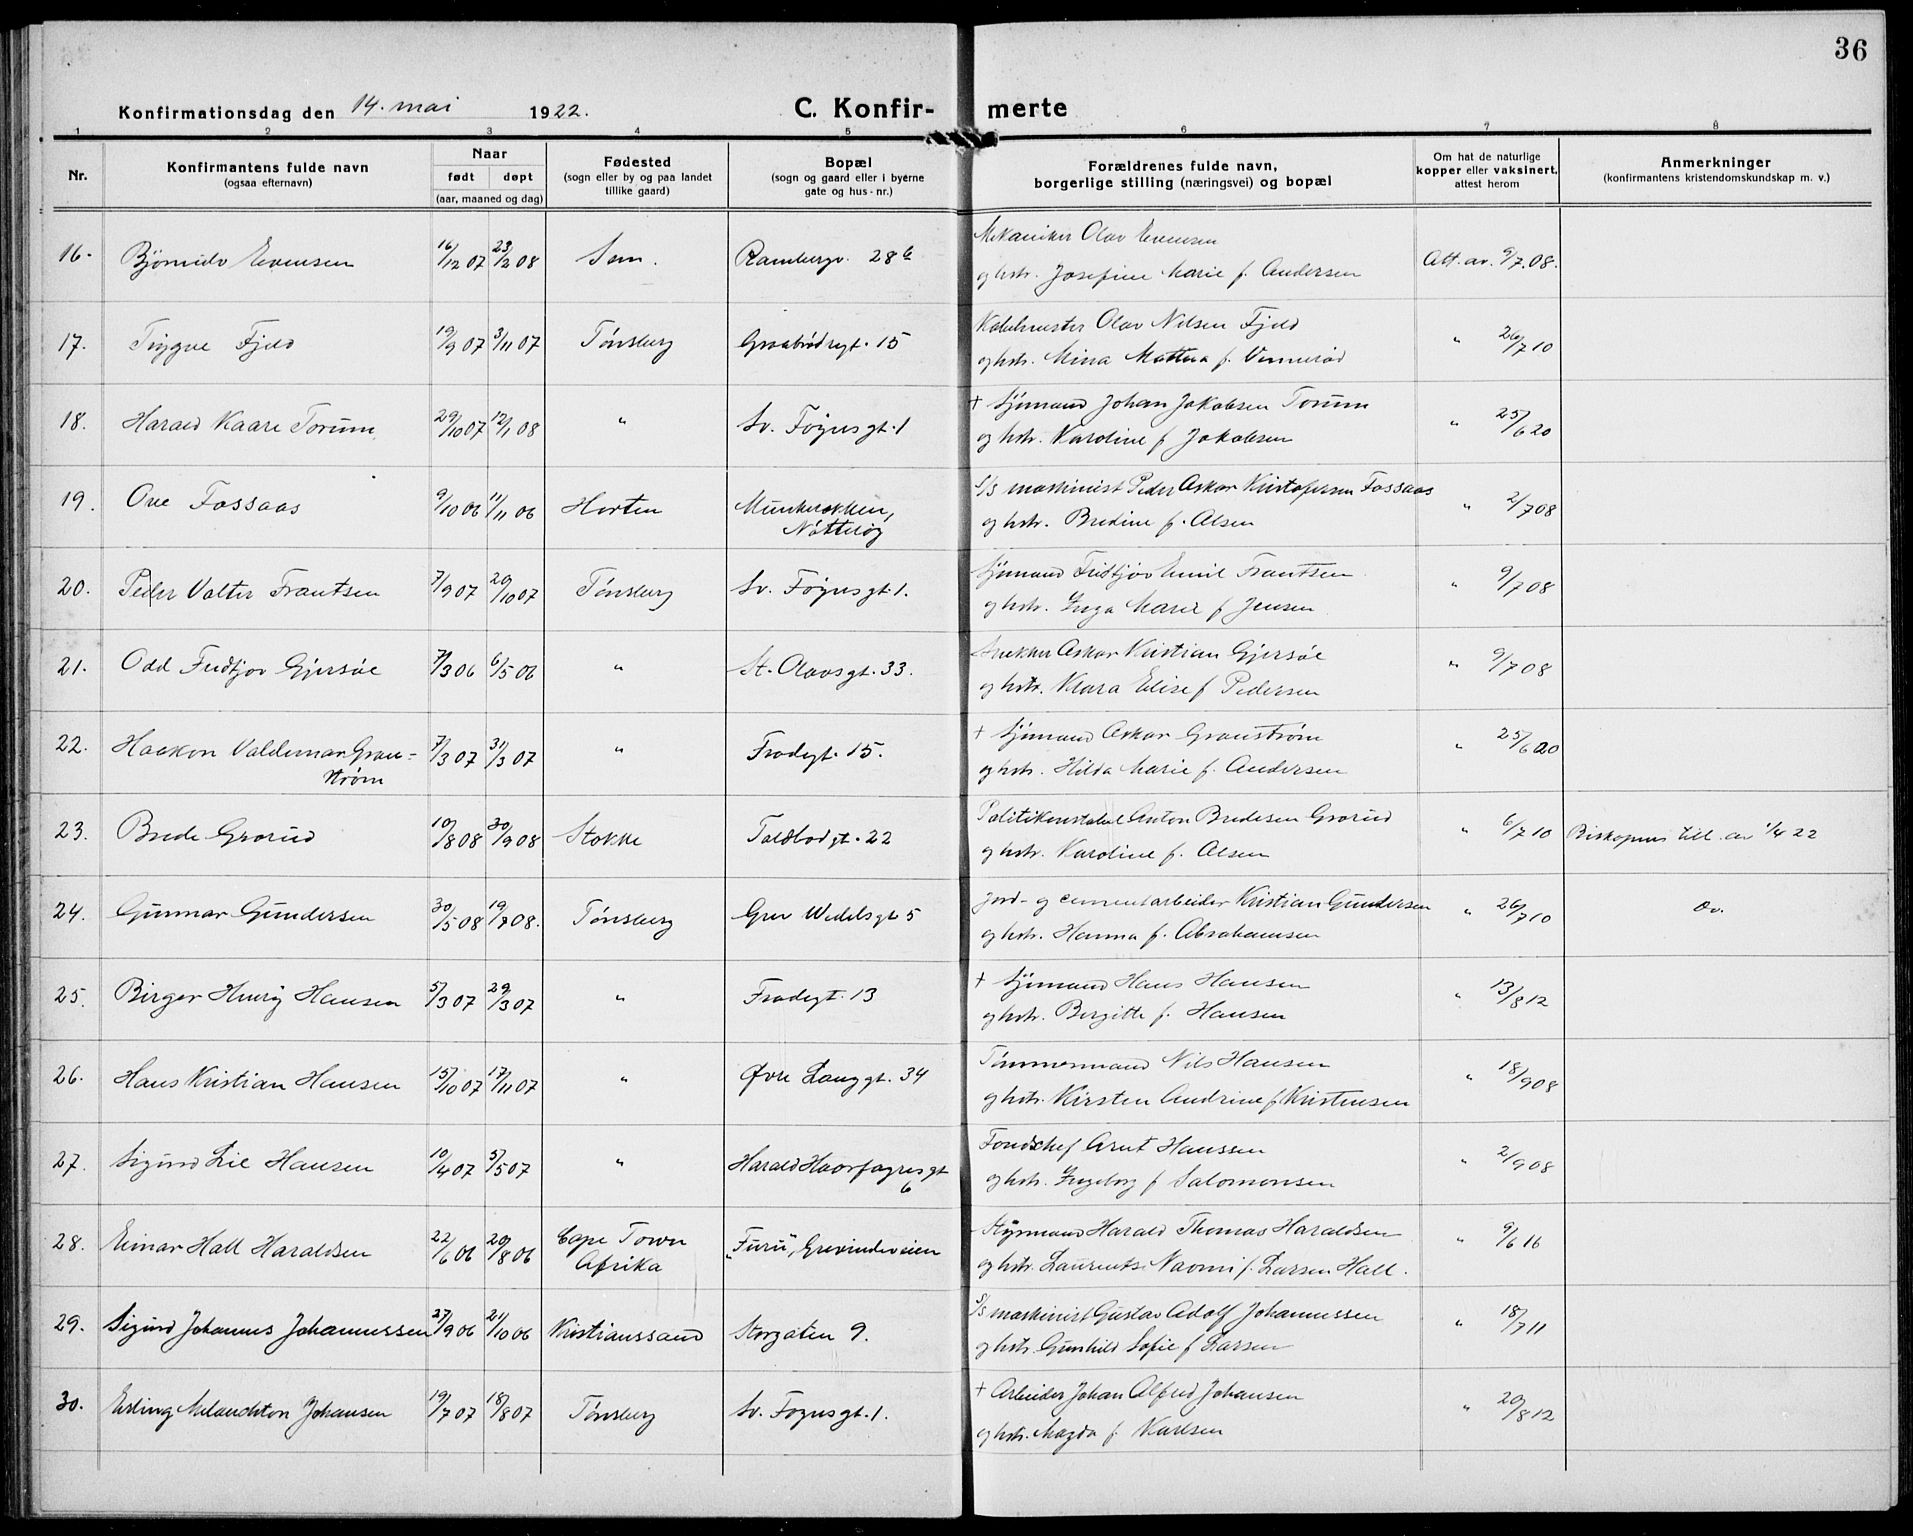 36
Konfirmationsdag den 14. mai 1922. C. Konfir- merte
1 2 3 4 5 6 7 8
Nr. Konfirmantens fulde navn (ogsaa efternavn) Naar født døpt (aar, maaned og dag) Fødested (sogn eller by og paa landet tillike gaard) Bopæl (sogn og gaard eller i byerne gate og hus-nr.) Forældrenes fulde navn, borgerlige stilling (næringsvei) og bopæl Om hat de naturlige kopper eller vaksinert, attest herom Anmerkninger (konfirmantens kristendomskundskap m. v.)
16. Bjørnulv Evensen 16/12 07 23/2 08 Sem. Rambergv. 28 b Mekaniker Olav Evensen
og hstr. Josefine Marie f. Andersen Att. av. 9/7.08.
17. Trygve Fjeld 19/9 07 3/11 07 Tønsberg Graabrødregt. 15 Olav Nilsen Fjeld
og hstr. Mina Mathea f. Vennerød " 26/7 10
18. Harald Kaare Torum 29/10 07 12/1 08 " Sv. Føynsgt. 1 + Sjømand Johan Jakobsen Torum
og hstr. Karoline f. Jakobsen " 25/6 20
19. Ove Fossaas 9/10 06 11/11 06 Horten Munkerekken,
Nøtterøy S/S maskinist Peder Oskar Kristofersen Fossaas
og hstr. Bredine f. Olsen " 2/7 08
20. Peder Valter Frantsen 7/9 07 20/10 07 Tønsberg Sv. Føynsgt. 1. Sjømand Fridtjov Emil Frantsen
og hstr. Inga Marie f. Jensen " 9/7 08
21. Odd Fridtjov Gjersøe 7/3 06 6/5 06 " St. Olavsgt. 33. Snekker Oskar Kristian Gjersøe
og hstr. Klara Elise f. Pedersen " 9/7 08
22. Haakon Valdemar Gran-
strøm 7/3 07 31/3 07 " Frodegt. 15. + Sjømand Oskar Granstrøm
og hstr. Hilda Marie f. Andersen " 25/6 20
23. Brede Grorud 10/8 08 30/9 08 Stokke Toldbodgt. 22 Politikonstabel Anton Bredesen Grorud
og hstr. Karoline f. Olsen " 6/7 10 Biskopens till. av 1/4 22
24. Gunnar Gundersen 30/5 08 19/7 08. Tønsberg Grev Wedelsgt 5 Jord- og cementarbeider Kristian Gundersen
og hstr. Hanna f. Abrahamsen " 26/7 10 Do.
25. Birger Henry Hansen 5/3 07 29/3 07 " Frodegt. 13 + Sjømand Hans Hansen
og hstr. Bergitte f. Hansen " 13/8 12
26. Hans Kristian Hansen 15/10 07 17/11 07 " Øvre Langgt. 34 Tømmermand Nils Hansen
og hstr. Kirsten Andrine f. Kristensen " 18/9 08
27. Sigurd Lie Hansen 10/4 07 5/5 07 " Harald Haarfagresgt
6 Arnt Hanssen
og hstr. Ingeborg f. Salomonsen " 2/9 08
28. Einar Hall Haraldsen 22/6 06 20/8 06 Cape Town
Afrika "Furu", Grevindeveien Styrmand Harald Thomas Haraldsen
og hstr. Laurentse Naomi f. Larsen Hall. " 9/6 16
29. Sigurd Johannes Johannessen 27/9 06 21/10 06 Kristianssand Storgaten 9. S/S maskinist Gustav Adolf Johannessen
og hstr. Gunhild Sofie f. Larsen " 18/7 11
30. Erling Melanchton Johansen 19/7 07 18/8 07 Tønsberg Sv. Foynsgt. 1. + Arbeider Johan Alfred Johansen
og hstr. Magda f. Karlsen " 20/8 12